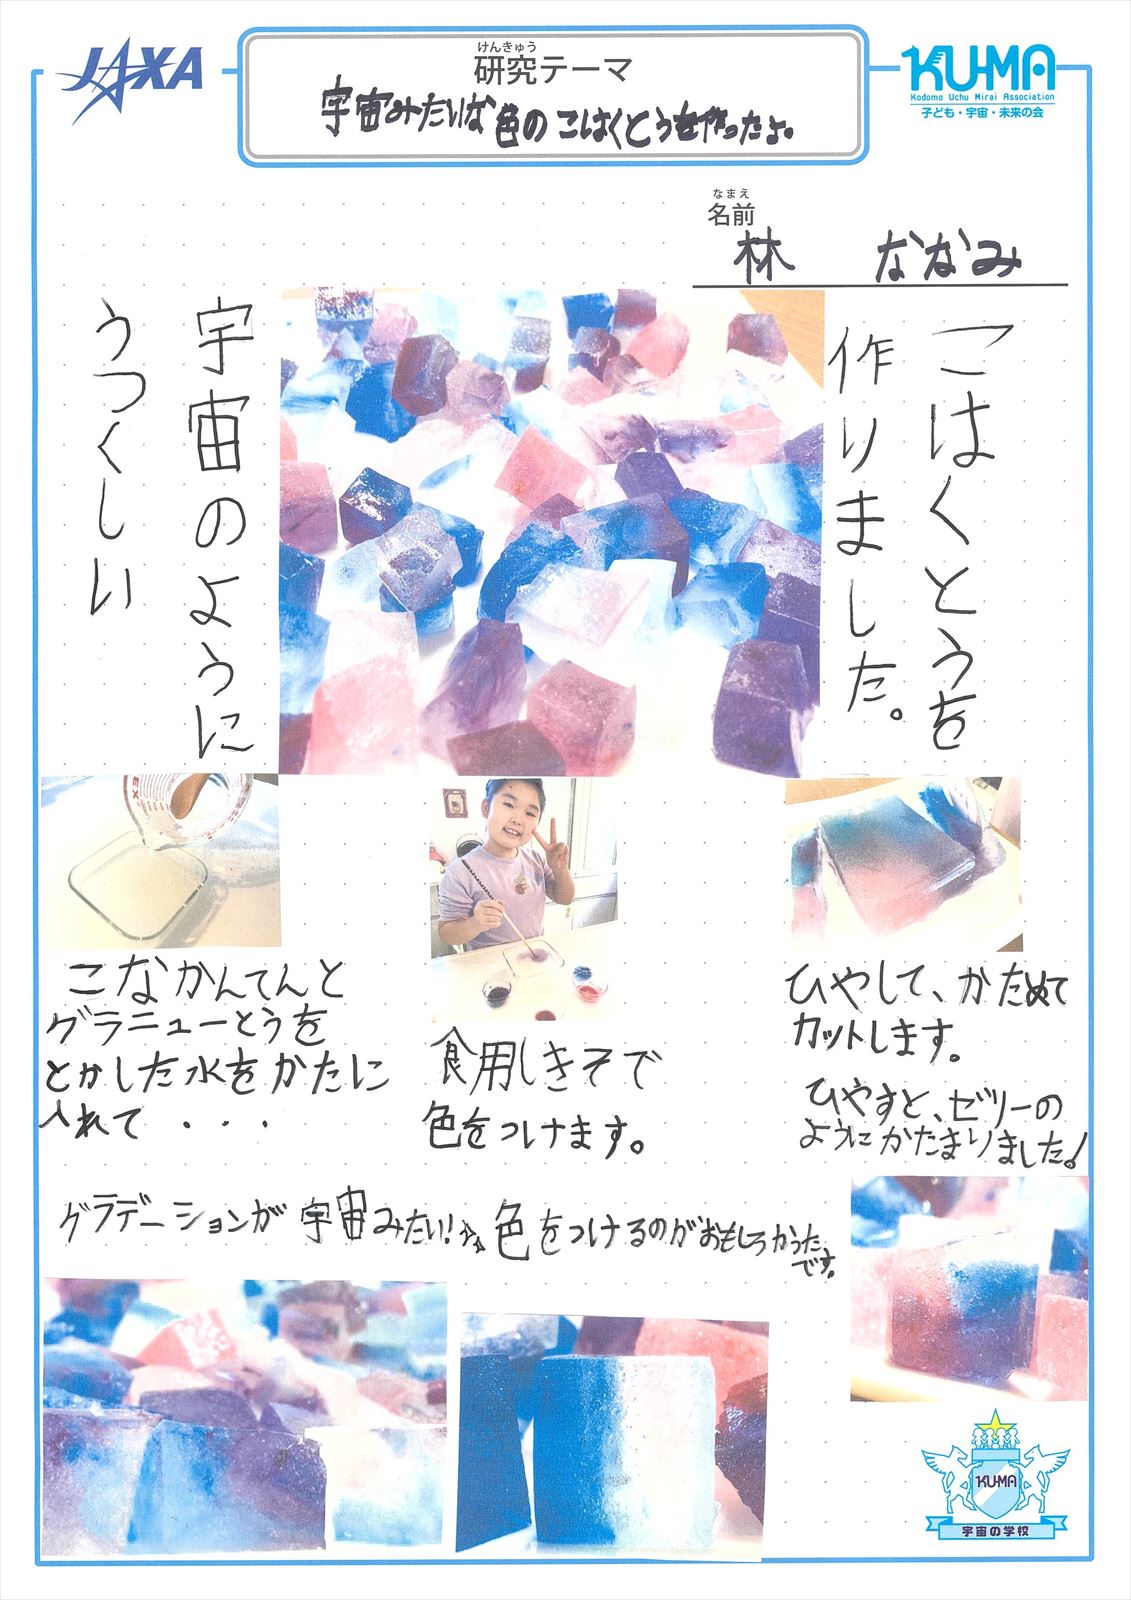 JAXA
けんきゅう
研究テーマ
宇宙みたいな色のこはくとうを作ったよ。
KU-MA
Kodomo Uchu Mirai Association
子ども・宇宙・未来の会
なまえ
名前
林 ななみ
宇宙のように
うつくしい
こはくとうを
作りました。
こなかんてんと
グラニューとうを
とかした水をかたに
入れて・・・
食用しきそで
色をつけます。
ひやして、かためて
カットします。
ひやすと、ゼリーの
ようにかたまりました!
グラデーションが宇宙みたい!☆☆色をつけるのがおもしろかった
です。
KU-MA
宇宙の学校